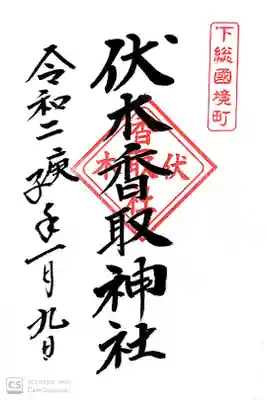 下総國境町
伏木香取神社
伏木
香取社
令和二庚子年一月九日
CS
Scanned with
CamScanner